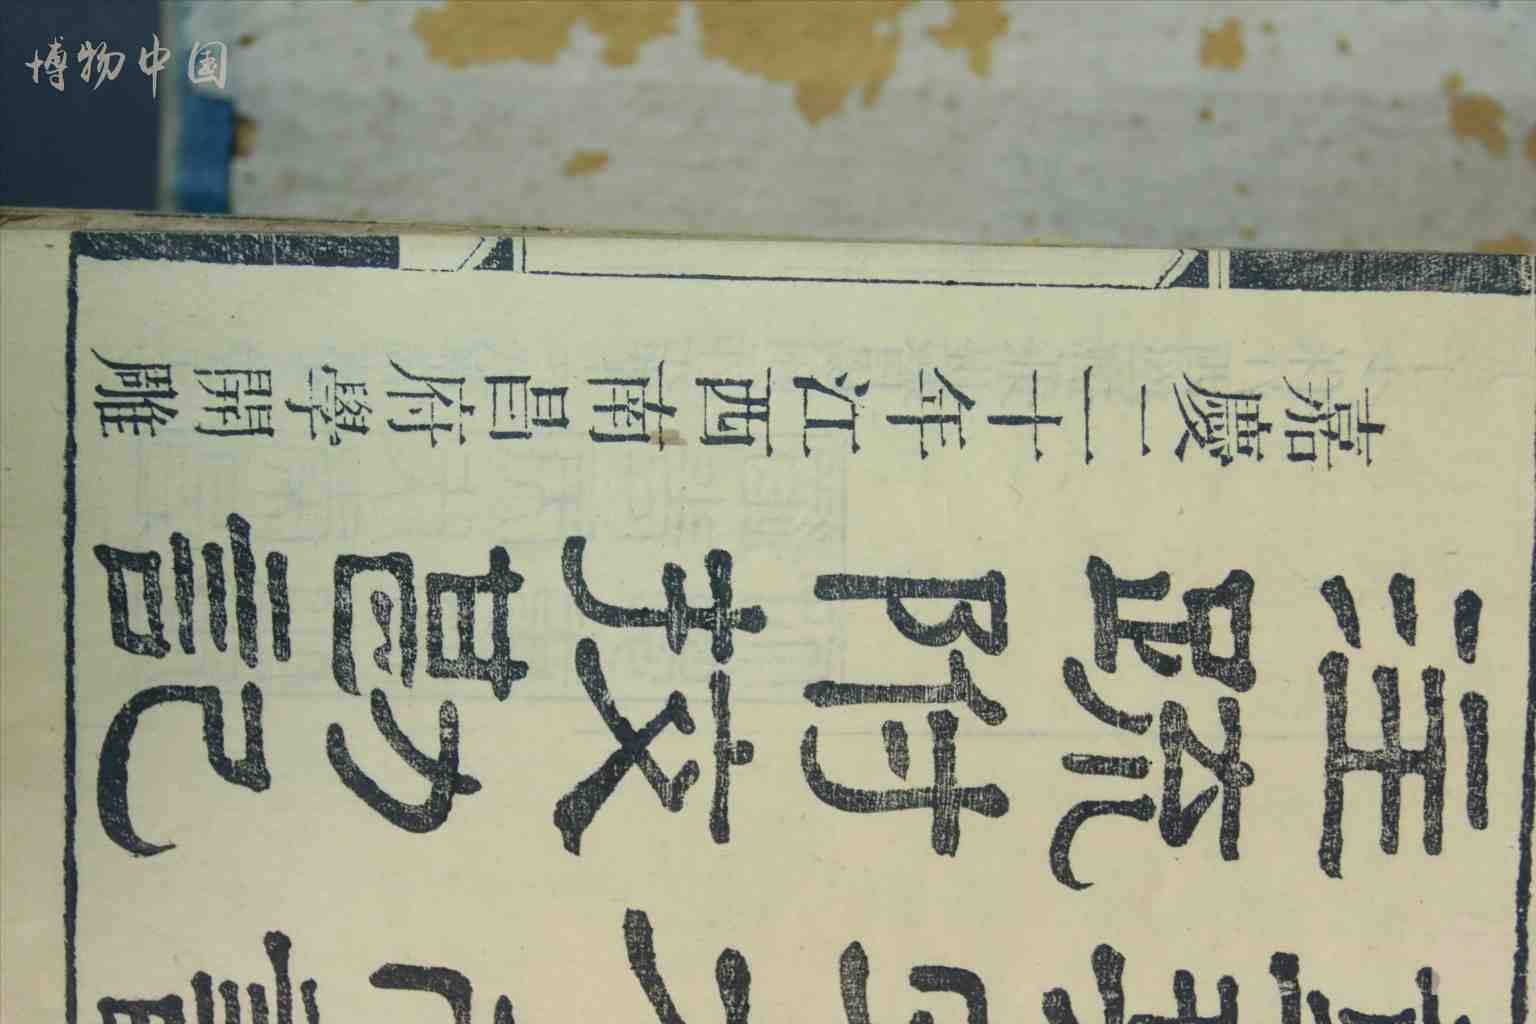 博物中国
嘉慶二十年江西南昌府學開雕
注疏附挍勘記